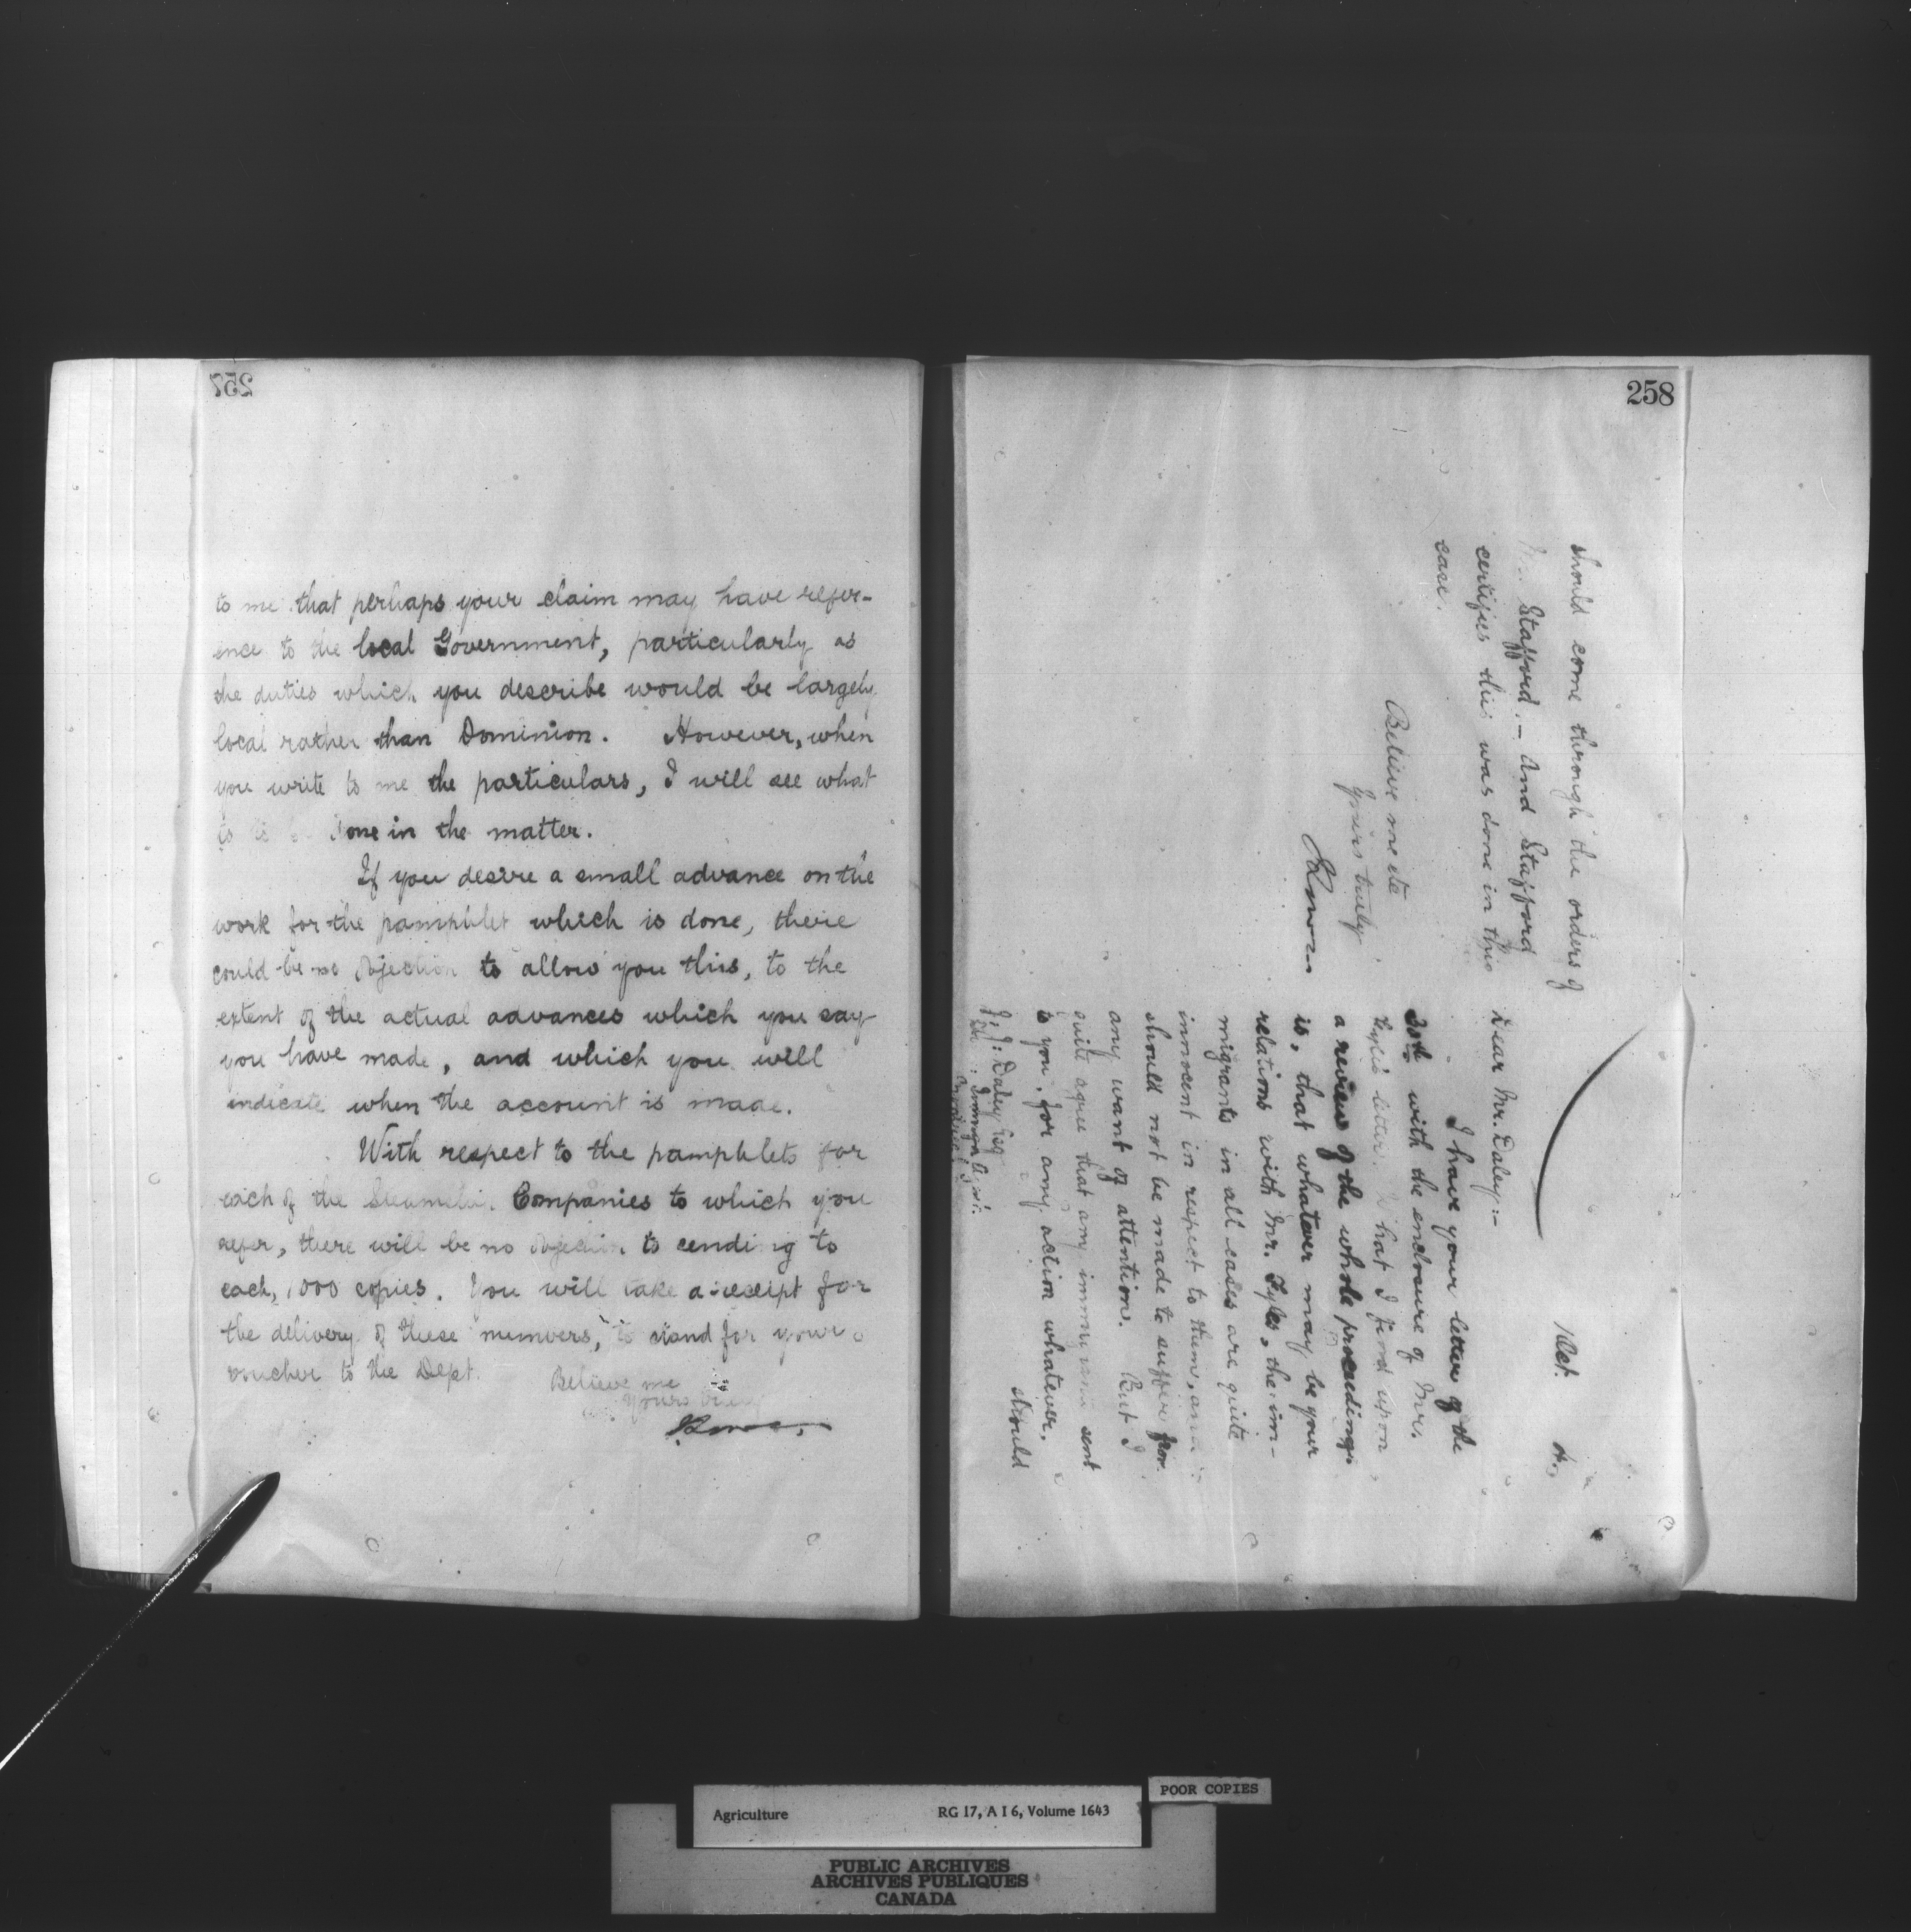 257
to me that perhaps your claim may have refer-
ence to the local Government, particularly as
the duties which you describe would be largely
local rather than Dominion. However, when
you write to me the particulars, I will see what
is to be done in the matter.
If you desire a small advance on the
work for the pamphlet which is done, there
could be no objection to allow you this, to the
extent of the actual advances which you say
you have made, and which you will
indicate when the account is made.
With respect to the pamphlets for
each of the Steamship Companies to which you
refer, there will be no objection to sending to
each, 1000 copies. You will take a receipt for
the delivery of these numbers, to stand for your
voucher to the Dept.
Believe me
Yours truly
258
Oct. 4.
Dear Mr. Daley:-
I have your letter of the
30th with the enclosure of Mr.
letter. What I find upon
a review of the whole proceedings
is, that whatever may be your
relations with Mr. Fyles, the im-
migrants in all cases are quite
innocent in respect to them, and
should not be made to suffer from
any want of attention. But I
quite agree that any immigrants sent
to you, for any action whatever,
J. J. Daley Esq
should
should come through the orders of
Mr. Stafford. - And Stafford
certifies this was done in this
case.
Believe me etc
Yours truly
POOR COPIES
Agriculture RG 17, A I 6, Volume 1643
PUBLIC ARCHIVES
ARCHIVES PUBLIQUES
CANADA